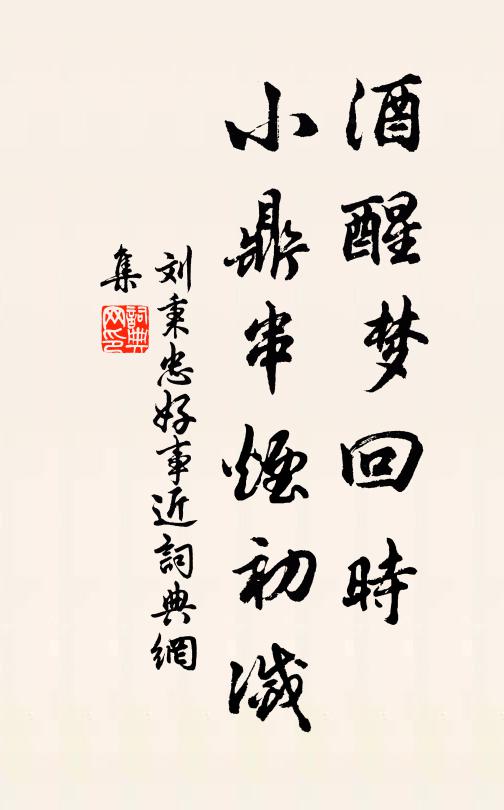 酒醒梦回時
小鼎串煙初滅
刘秉忠好事近詞典網
集
詞典
网印